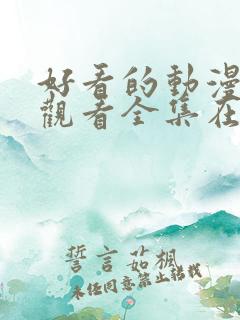 好看的動漫
觀看全集在
誓言茹楓
未任同意禁止轉載